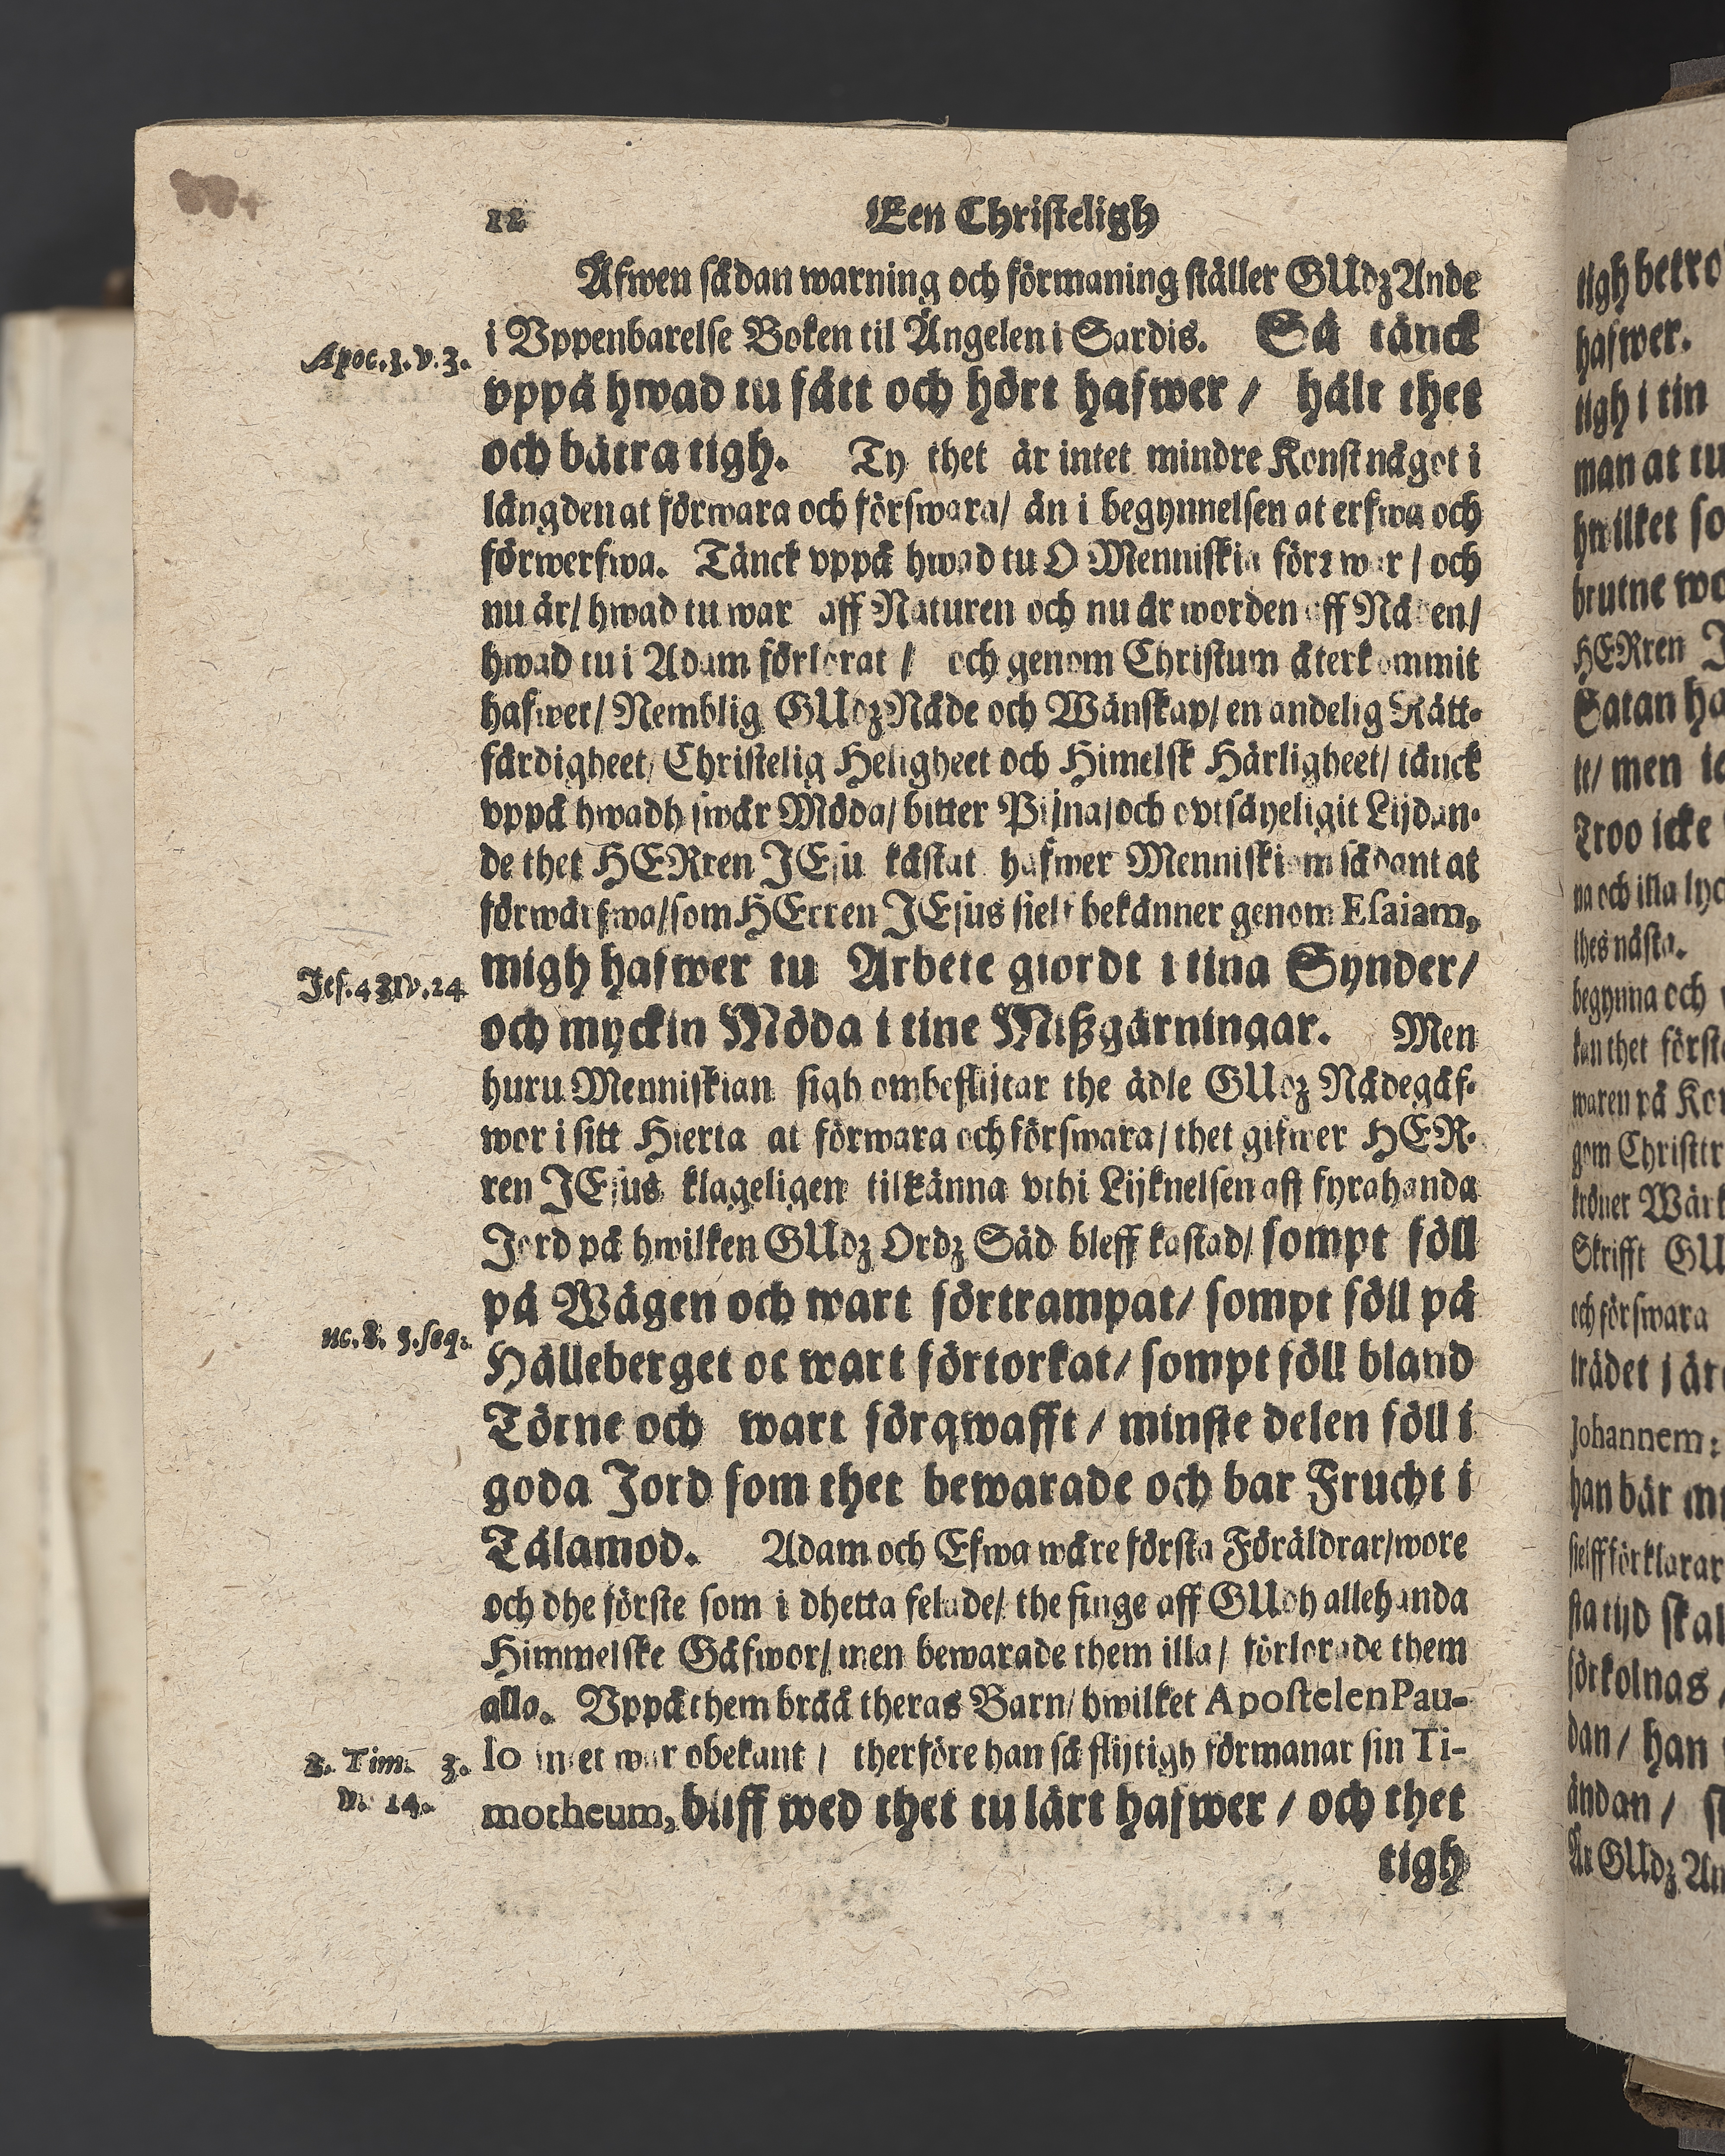 12
Een Christeligh
Äfwen sådan warning och förmaning ställer GUdz Ande
i Vppenbarelse Boken til Ängelen i Sardis. Så tänck
Apoc. 3. v. 3.
vppå hwad tu fått och hört hafwer / hålt thet
och bätra tigh. Ty thet är intet mindre Konst något i
längden at förwara och förswara/ än i begynnelsen at erfwa och
förwerfwa. Tänck vppå hwad tu O Menniskia förr war / och
nu är/ hwad tu war aff Naturen och nu är worden aff Nåden/
hwad tu i Adam förlorat / och genom Christum återkommit
hafwer/ Nemblig GUdz Nåde och Wänskap/ en andelig Rätt-
färdigheet/ Christelig Heligheet och Himelsk Härligheet/ tänck
vppå hwadh swår Möda/ bitter Pijna/ och ovtsäyeligit Lijdan-
de thet HERren JEsu kåstat hafwer Menniskiom sådant at
förwärfwa/ som HErren JEsus sielf bekänner genom Esaiam,
migh hafwer tu Arbete giordt i tina Synder/
Jes. 43. v. 24
och myckin Möda i tine Mißgärningar. Men
huru Menniskian sigh ombeflijtar the ädle GUdz Nådegåf-
wor i sitt Hierta at förwara och förswara/ thet gifwer HER-
ren JEsus klageligen tilkänna vthi Lijknelsen aff fyrahanda
Jord på hwilken GUdz Ordz Säd bleff kastad/ sompt föll
på Wägen och wart förtrampat/ sompt föll på
uc. 8. 5. seq.
Hälleberget oc wart förtorkat/ sompt föll bland
Törne och wart förqwafft / minste delen föll i
goda Jord som thet bewarade och bar Frucht i
Tålamod. Adam och Efwa wåre första Föräldrar/ wore
och dhe förste som i dhetta felade/ the finge aff GUdh allehanda
Himmelske Gåfwor/ men bewarade them illa / förlorade them
alla. Vppå them bråå theras Barn/ hwilket Apostelen Pau-
lo intet war obekant / therföre han så flijtigh förmanar sin Ti-
2. Tim. 3.
v. 14.
motheum, bliff wed thet tu lärt hafwer / och thet
tigh
tigh betro
hafwer.
tigh i tin
man at tu
hwilket so
brutne wo
HERren J
Satan ha
te/ men ic
Troo icke
na och illa lyc
thes nästa.
begynna och
kan thet först
waren på Kor
gom Christtr
kröner Wärk
Skrifft GU
och förswara
trädet j är
Johannem:
han bär m
sielff förklarar
sta tijd skal
förkolnas /
dan / han
ändan /
Är GUdz An